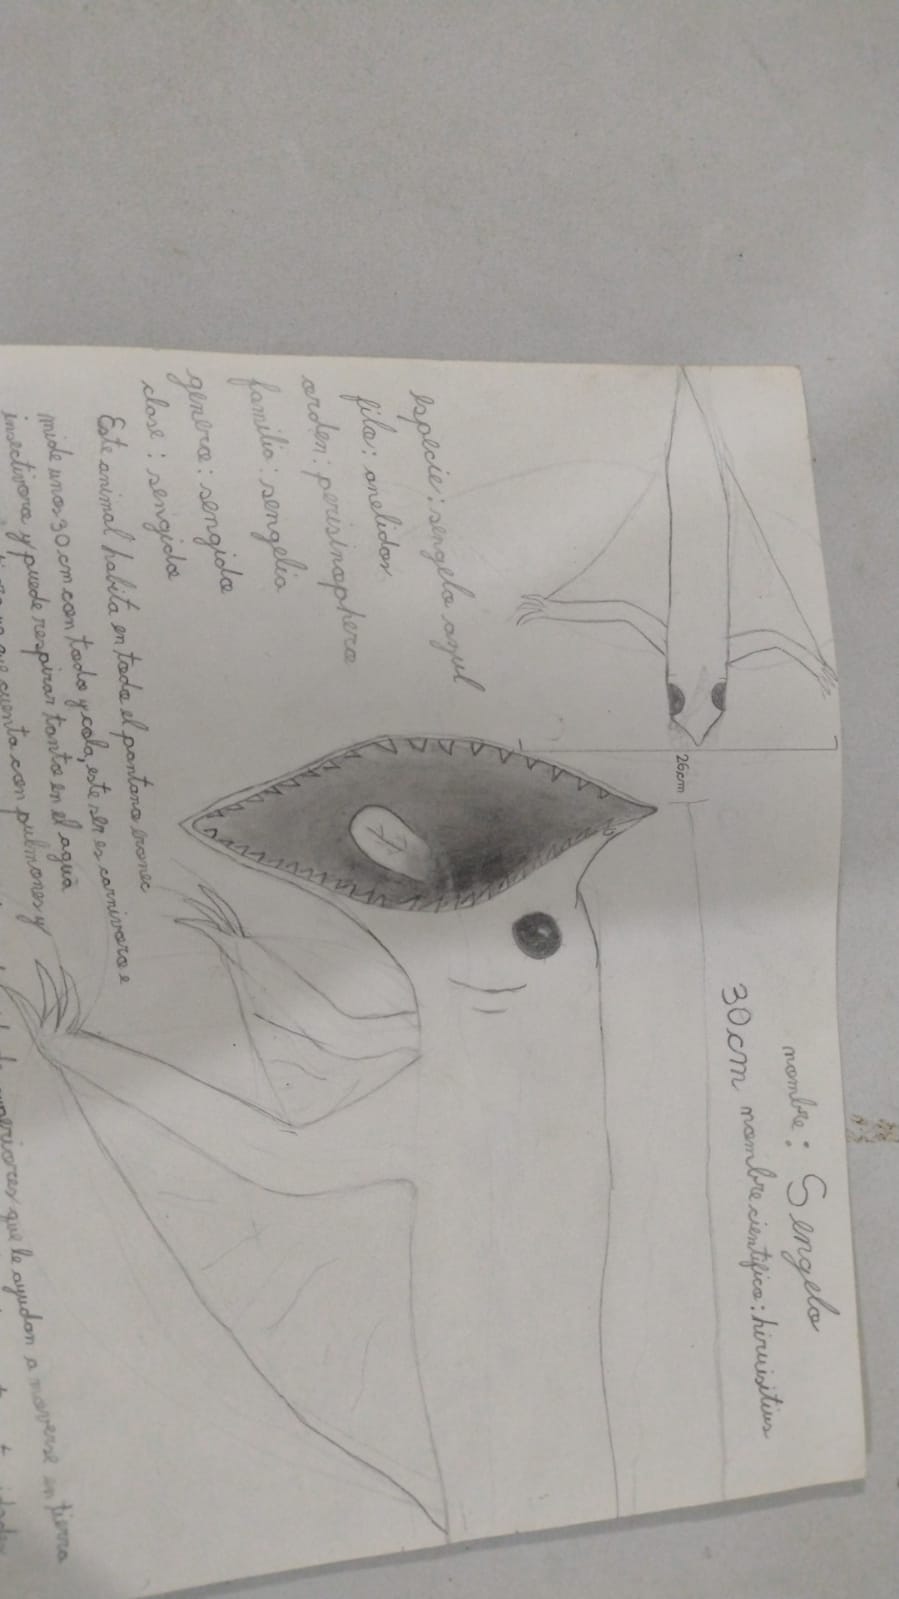 nombre: Sengelo
30cm nombre cientifico: hiruisitius
26cm
especie: sengelo azul
filo: anelidos
orden: perisinophero
familia: sengelia
genero: sengido
clase: sengida
Este animal habita en todo el pantano
mide unos 30 cm con todo y cola, este ser es carnivoro e
insectivoro y puede respirar tanto en el agua
que cuenta con pulmones y
superiores que le ayudan a moverse en tierra